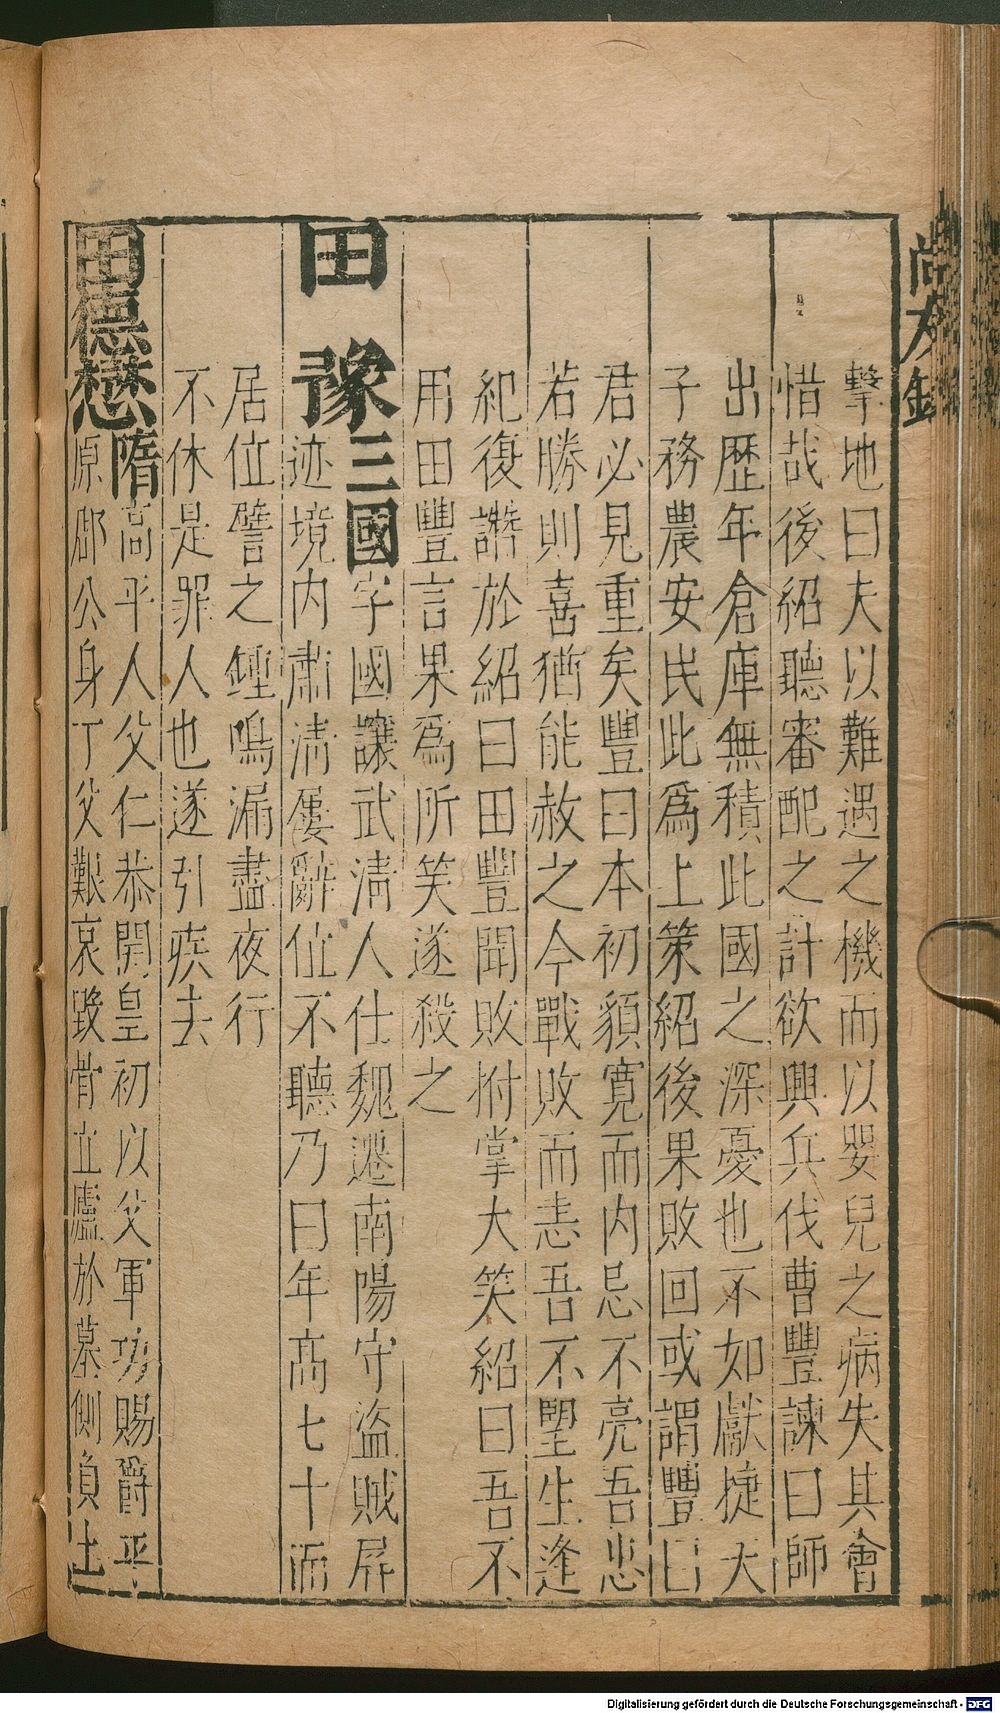 擊地曰夫以難遇之機而以嬰兒之病失其會
惜哉後紹聽審配之計欲興兵伐曹豐諫曰師
出歷年倉庫無積此國之深憂也不如獻捷大
子務農安民此爲上策紹後果敗回或謂豐曰
君必見重矣豐曰本初貌寬而内忌不亮吾忠
若勝則喜猶能赦之今戰敗而恚吾不望生逢
紀復譖於紹曰田豐聞敗拊掌大笑紹曰吾不
用田豐言果爲所笑遂殺之
田豫三國字國讓武清人仕魏遷南陽守盜賊屏
迹境内肅清屢辭位不聽乃曰年高七十而
居位譬之鍾鳴漏盡夜行
不休是罪人也遂引疾去
田德懋隋高平人父仁恭開皇初以父軍功賜爵平
原郡公身丁父艱哀毀骨立廬於墓側負土
尚友錄
Digitalisierung gefördert durch die Deutsche Forschungsgemeinschaft - DFG